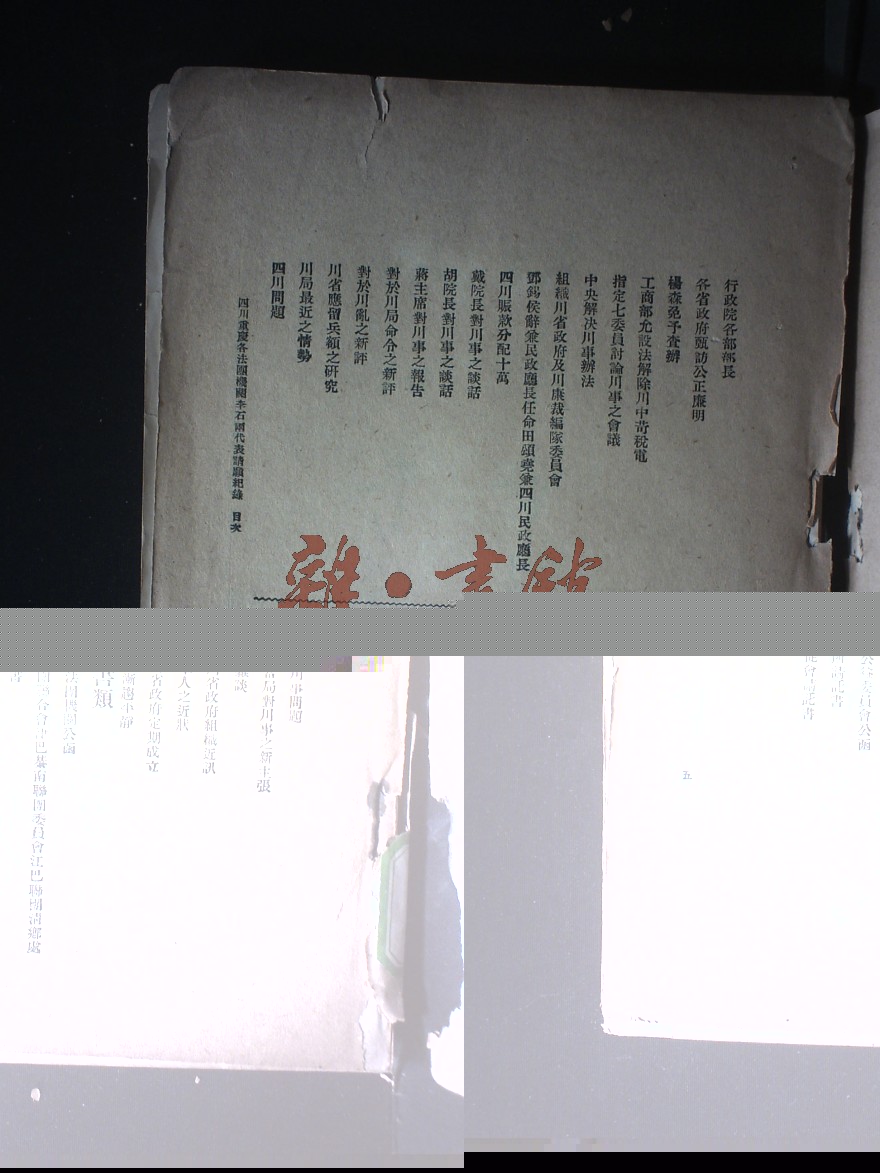 行政院各部部長
各省政府甄訪公正廉明
楊森免予查辦
工商部允設法解除川中苛稅電
指定七委員討論川事之會議
中央解决川事辦法
組織川省政府及川康裁編隊委員會
鄧錫侯辭兼民政廳長任命田頌堯兼四川民政廳長
四川賑款分配十萬
戴院長對川事之談話
胡院長對川事之談話
蔣主席對川事之報告
對於川局命令之新評
對於川亂之新評
川省應留兵額之研究
川局最近之情勢
四川問題
四川重慶各法團機關李石兩代表請願紀錄 目次
雜·書館
川事問題
當局對川事之新主張
省政府組織近訊
人之近狀
省政府定期成立
漸趨平靜
書類
法團機關公函
團聯合會江巴綦南聯團委員會江巴聯團清鄉處
委員會公函
五